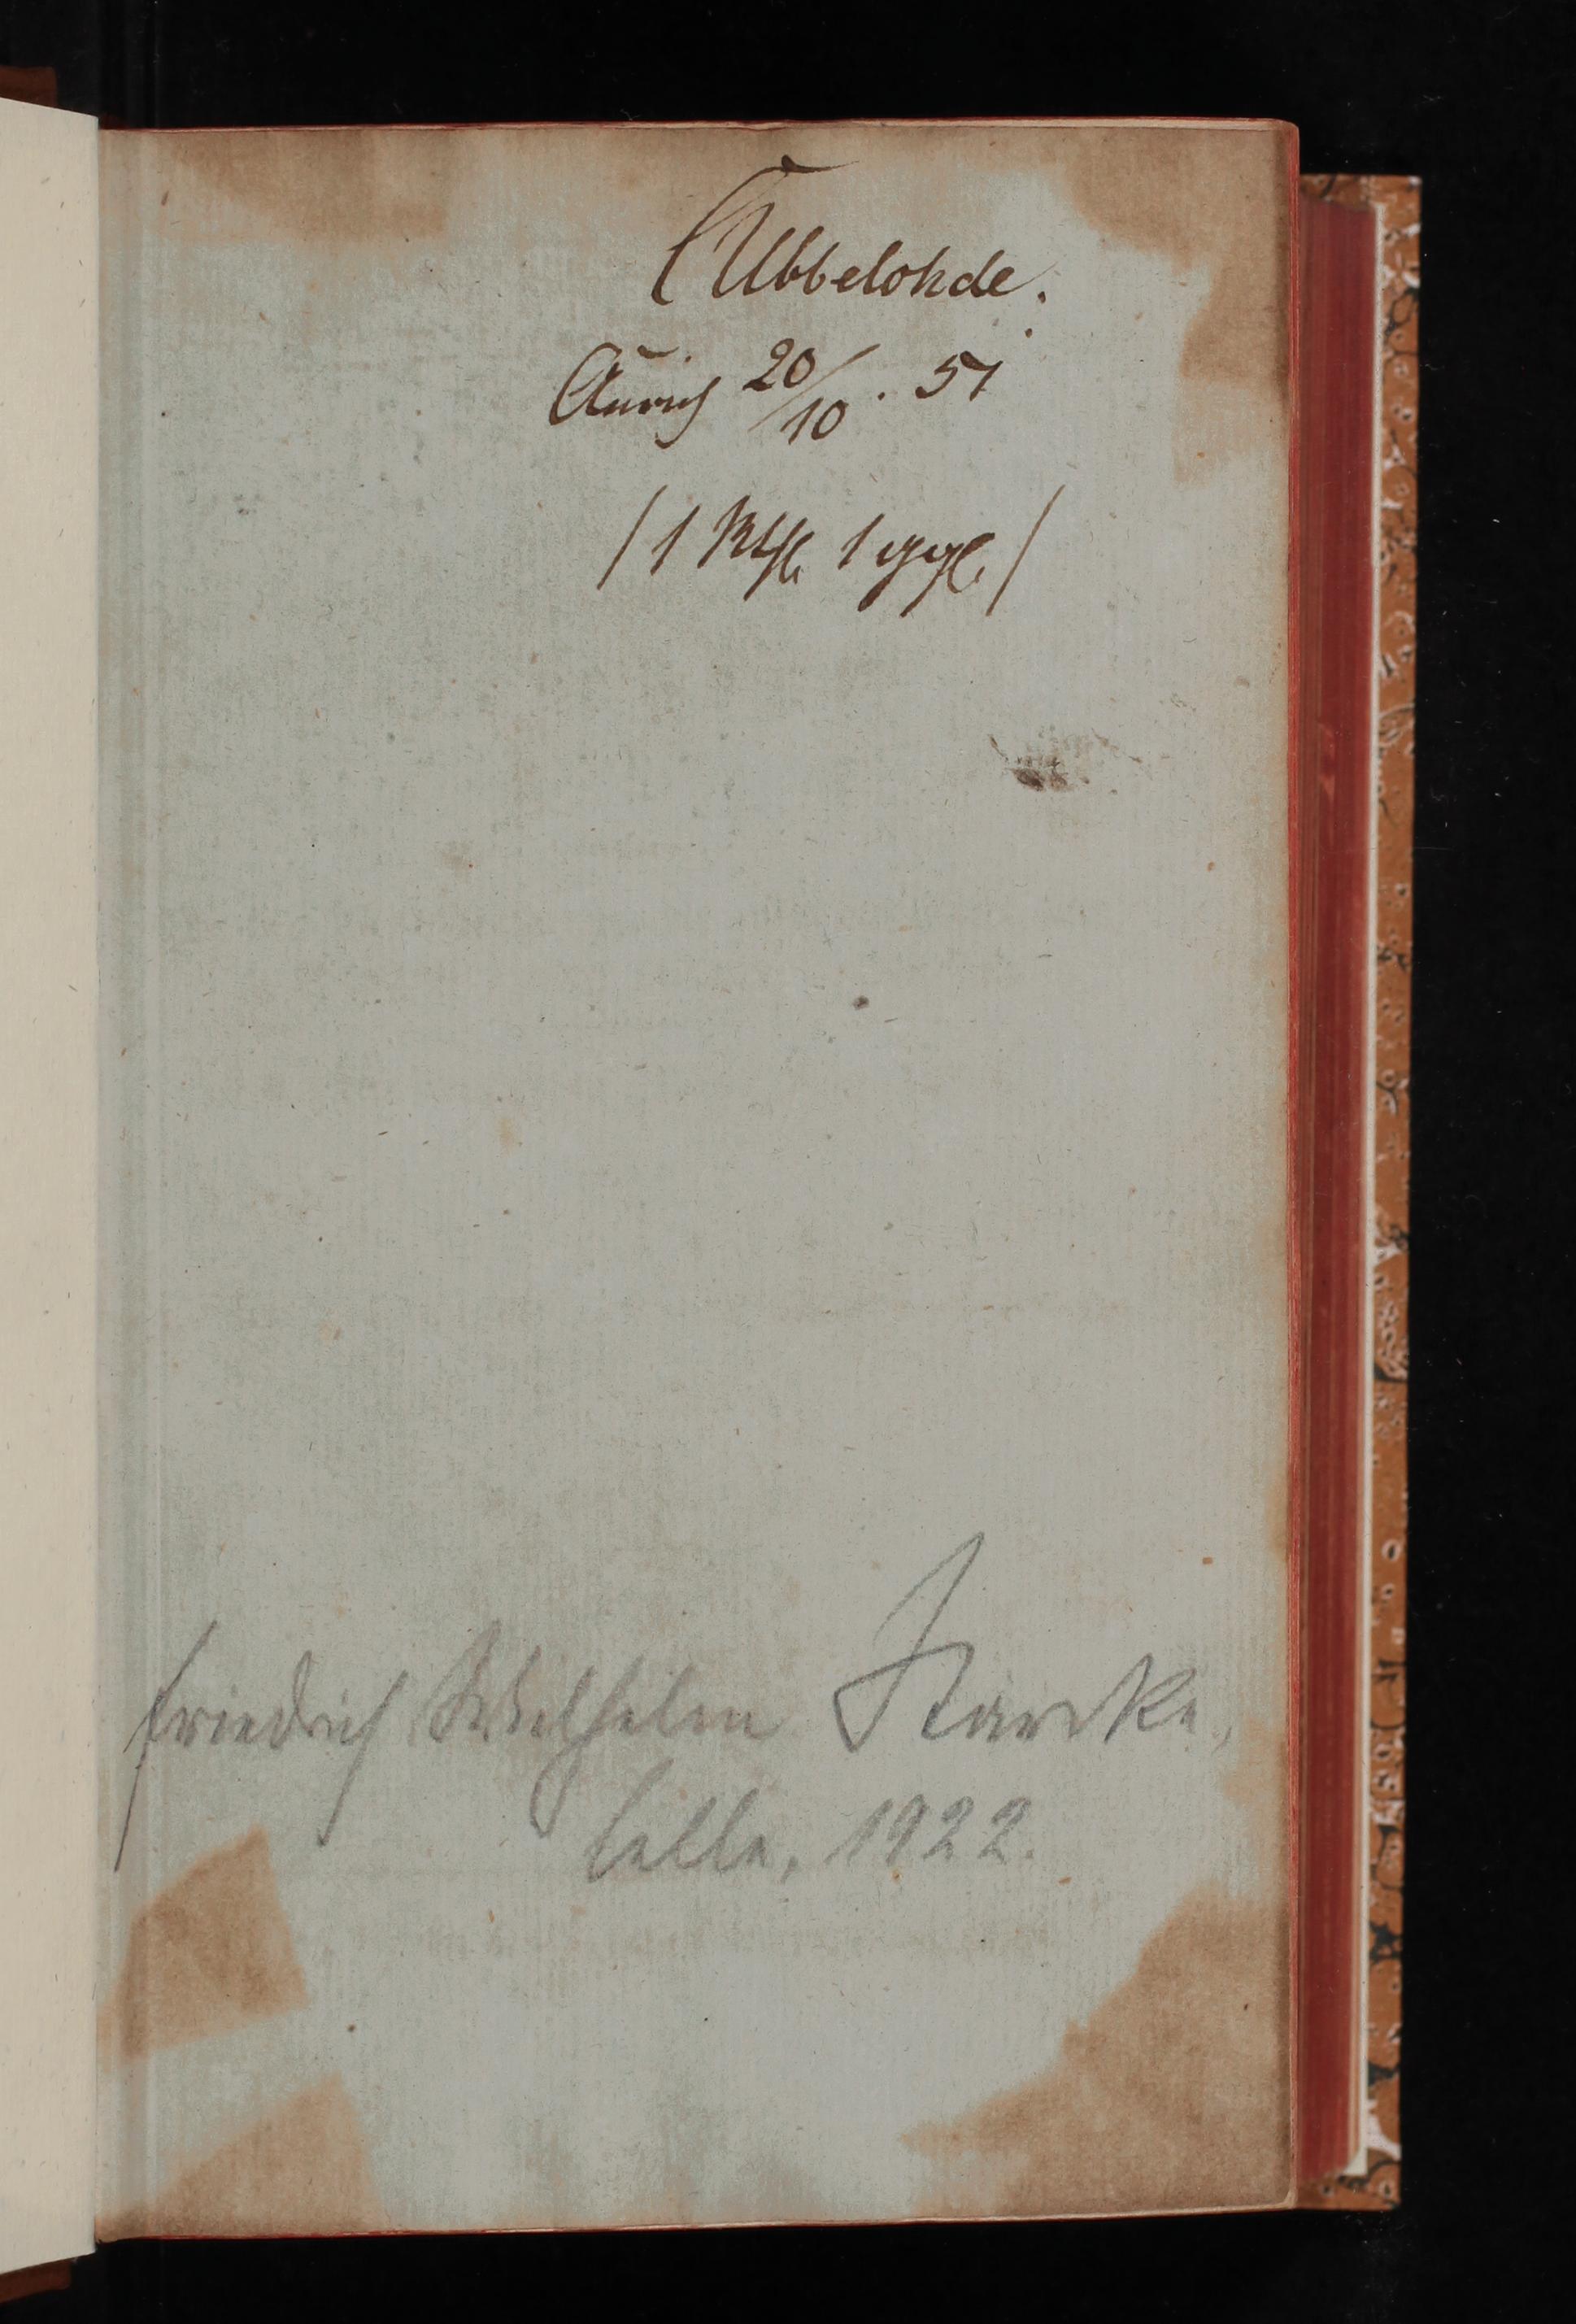 Ubbelohde.
Aurich 20/10. 51
/ 1 Rthl. 1 ggl. /
Friedrich Wilhelm Starcke,
Celle, 1922.